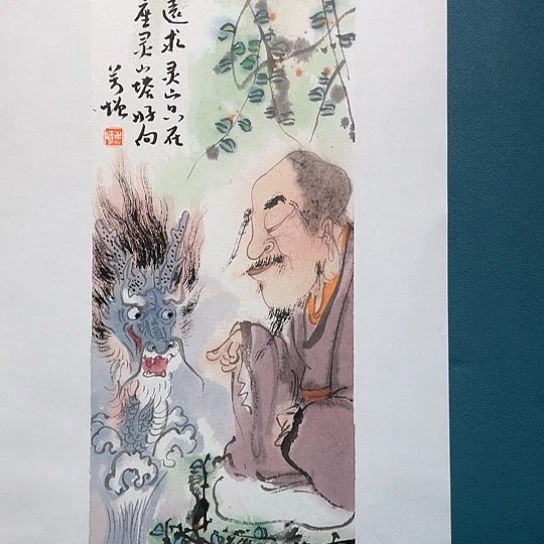 遠求灵山只在
座灵山塔好向